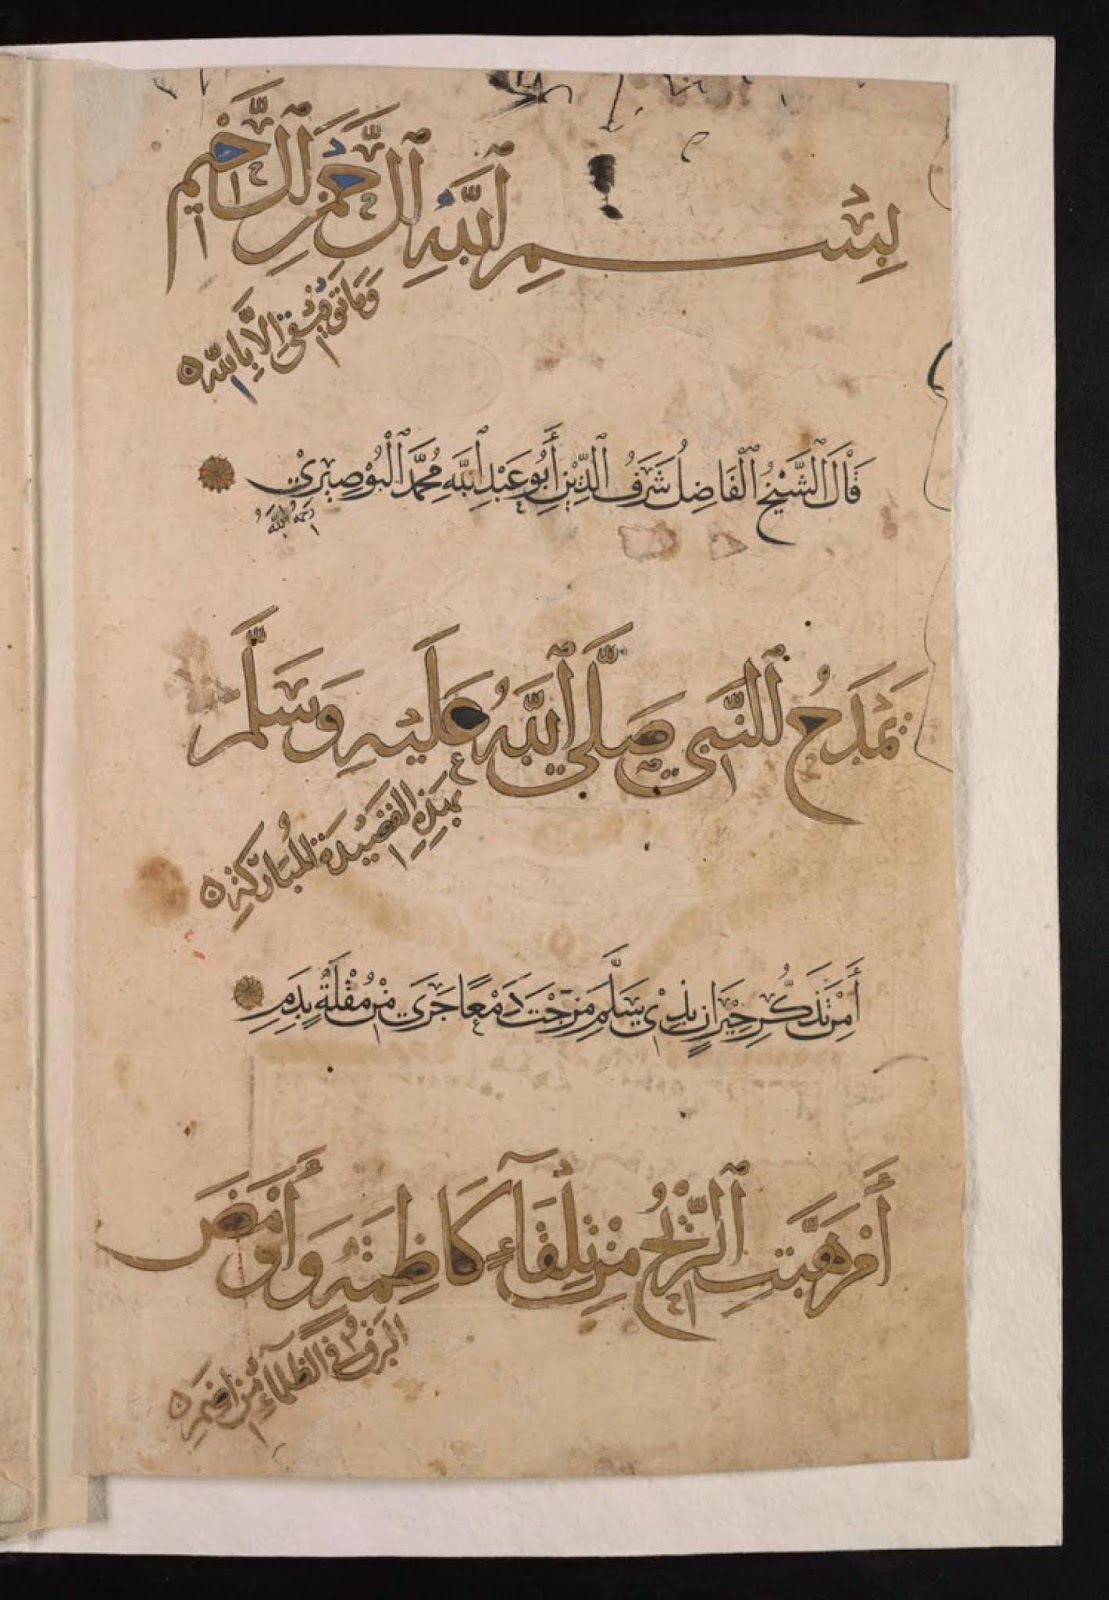 بِسْمِ اللَّهِ الرَّحْمَنِ الرَّحِيمِ
وَمَا تَوْفِيقِي إِلَّا بِاللَّهِ
قَالَ الشَّيْخُ الْفَاضِلُ شَرَفُ الدِّيْنِ أَبُو عَبْدِ اللَّهِ مُحَمَّدُ الْبُوْصِيرِيْ
رَحِمَهُ اللَّهُ
يَمْدَحُ النَّبِيَّ صَلَّى اللَّهُ عَلَيْهِ وَسَلَّمَ
بِهَذِهِ الْقَصِيْدَةِ الْمُبَارَكَةِ
أَمِنْ تَذَكُّرِ جِيْرَانٍ بِذِيْ سَلَمِ مَزَجْتَ دَمْعًا جَرَى مِنْ مُقْلَةٍ بِدَمِ
أَمْ هَبَّتِ الرِّيْحُ مِنْ تِلْقَاءِ كَاظِمَةٍ وَأَوْمَضَ
الْبَرْقُ فِي الظَّلْمَاءِ مِنْ إِضَمِ